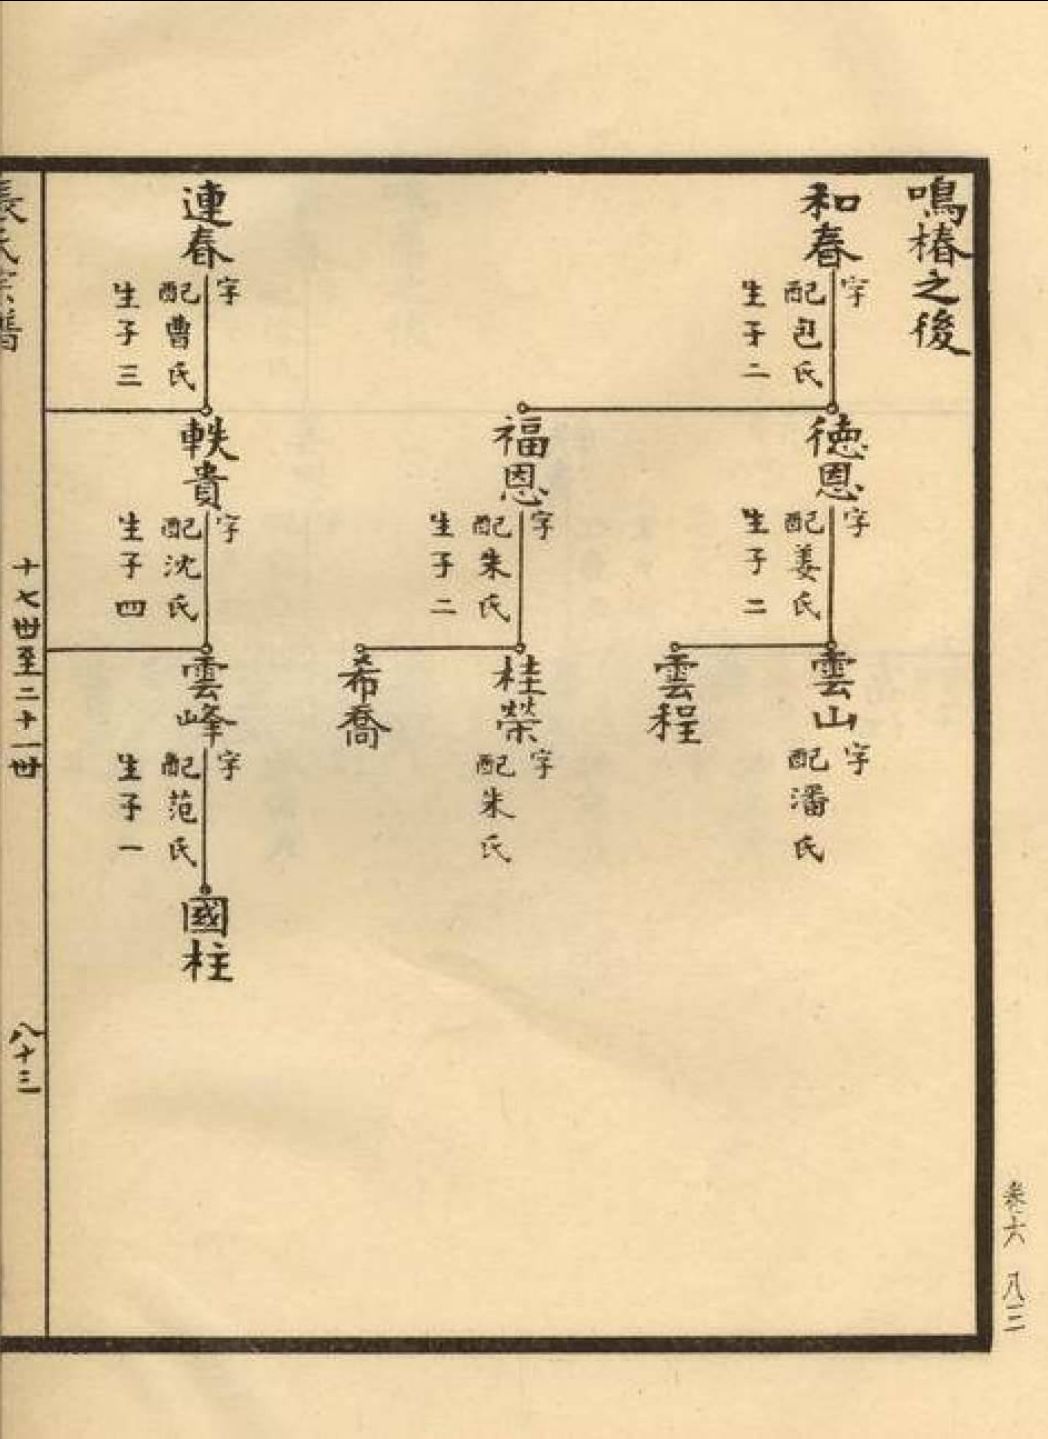 鳴椿之後
和春
字
配包氏
生子二
德恩
字
配姜氏
生子二
雲山
字
配潘氏
雲程
福恩
字
配朱氏
生子二
桂榮
字
配朱氏
希喬
連春
字
配曹氏
生子三
軼貴
字
配沈氏
生子四
雲峰
字
配范氏
生子一
國柱
張氏宗譜
十七卋至二十一卋
八十三
卷六 八三